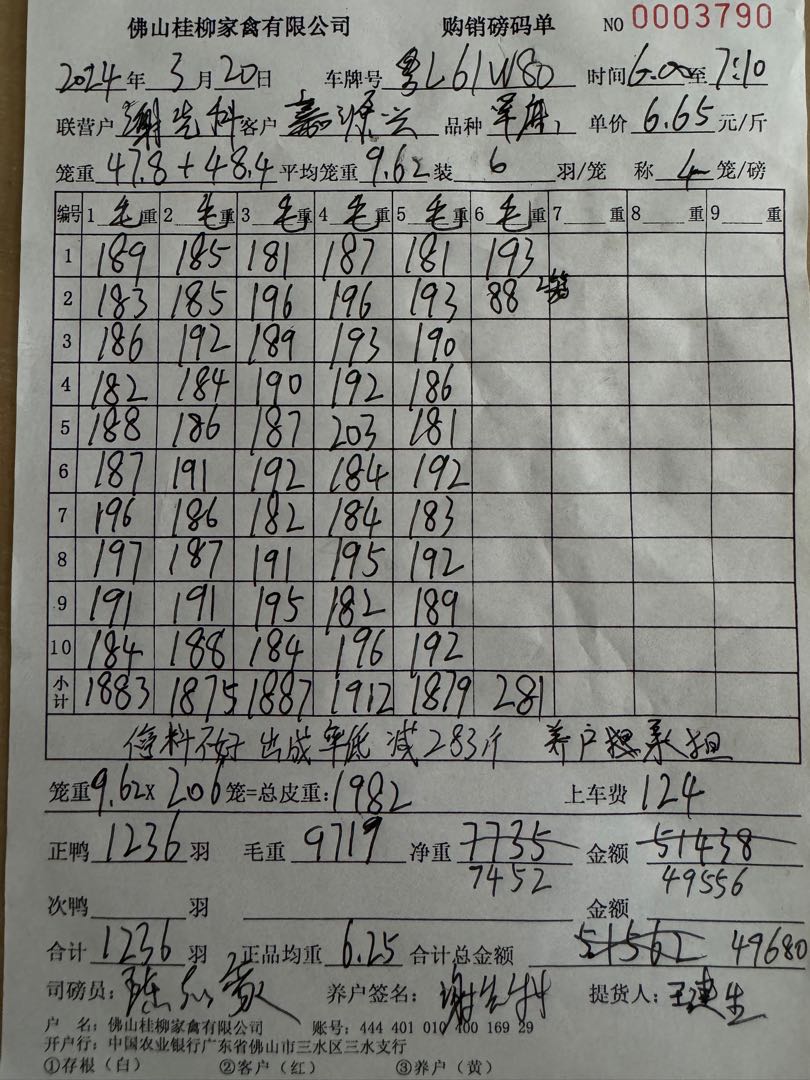 佛山桂柳家禽有限公司 购销磅码单 NO 0003790
2024年3月20日 车牌号 粤L61W80 时间6:00至7:10
联营户 谢先科 客户 嘉源兴 品种 单价 6.65 元/斤
笼重 47.8+48.4 平均笼重 9.62 装 6 羽/笼 称 4 笼/磅
编号 1 毛重 2 毛重 3 毛重 4 毛重 5 毛重 6 毛重 7 重 8 重 9 重
1 189 185 181 187 181 193
2 183 185 196 196 193 88 2笼
3 186 192 189 193 190
4 182 184 190 192 186
5 188 186 187 203 181
6 187 191 192 184 192
7 196 186 182 184 183
8 197 187 191 195 192
9 191 191 195 182 189
10 184 188 184 196 192
小计 1883 1875 1887 1912 1879 281
停料不好 出成率低 减283斤 养户承担
笼重9.62x206笼=总皮重:1982 上车费 124
正鸭 1236 羽 毛重 9719 净重 7735 金额 51438
7452 49556
次鸭 羽 金额
合计 1236 羽 正品均重 6.25 合计总金额 51562 49680
司磅员: 养户签名: 谢先科 提货人: 王建生
户 名: 佛山桂柳家禽有限公司 账号: 444 401 010 400 169 29
开户行: 中国农业银行广东省佛山市三水区三水支行
①存根(白) ②客户(红) ③养户(黄)